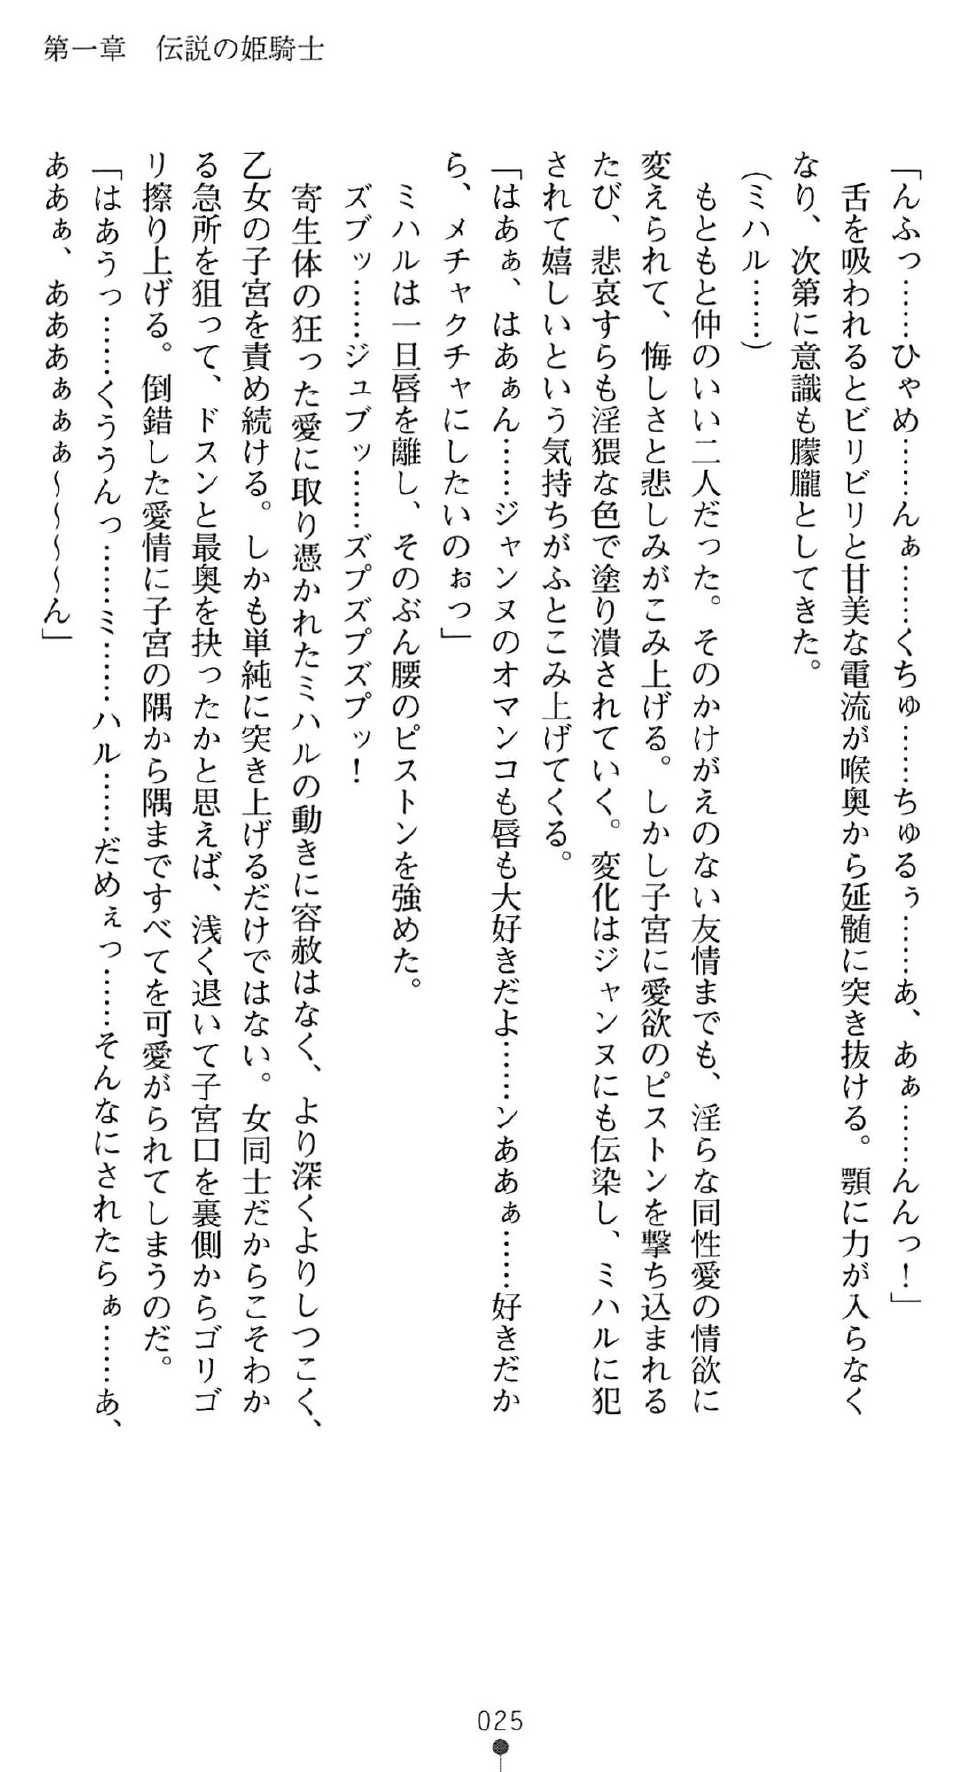 第一章　伝説の姫騎士
「んふっ……ひゃめ……んぁ……くちゅ……ちゅるぅ……あ、あぁ……んんっ！」
　舌を吸われるとビリビリと甘美な電流が喉奥から延髄に突き抜ける。顎に力が入らなく
なり、次第に意識も朦朧としてきた。
（ミハル……）
　もともと仲のいい二人だった。そのかけがえのない友情までも、淫らな同性愛の情欲に
変えられて、悔しさと悲しみがこみ上げる。しかし子宮に愛欲のピストンを撃ち込まれる
たび、悲哀すらも淫猥な色で塗り潰されていく。変化はジャンヌにも伝染し、ミハルに犯
されて嬉しいという気持ちがふとこみ上げてくる。
「はあぁ、はあぁん……ジャンヌのオマンコも唇も大好きだよ……ンああぁ……好きだか
ら、メチャクチャにしたいのぉっ」
　ミハルは一旦唇を離し、そのぶん腰のピストンを強めた。
　ズブッ……ジュブッ……ズプズプズプッ！
　寄生体の狂った愛に取り憑かれたミハルの動きに容赦はなく、より深くよりしつこく、
乙女の子宮を責め続ける。しかも単純に突き上げるだけではない。女同士だからこそわか
る急所を狙って、ドスンと最奥を抉ったかと思えば、浅く退いて子宮口を裏側からゴリゴ
リ擦り上げる。倒錯した愛情に子宮の隅から隅まですべてを可愛がられてしまうのだ。
「はあうっ……くううんっ……ミ……ハル……だめぇっ……そんなにされたらぁ……あ、
ああぁ、あああぁぁぁ～～～～ん」
025